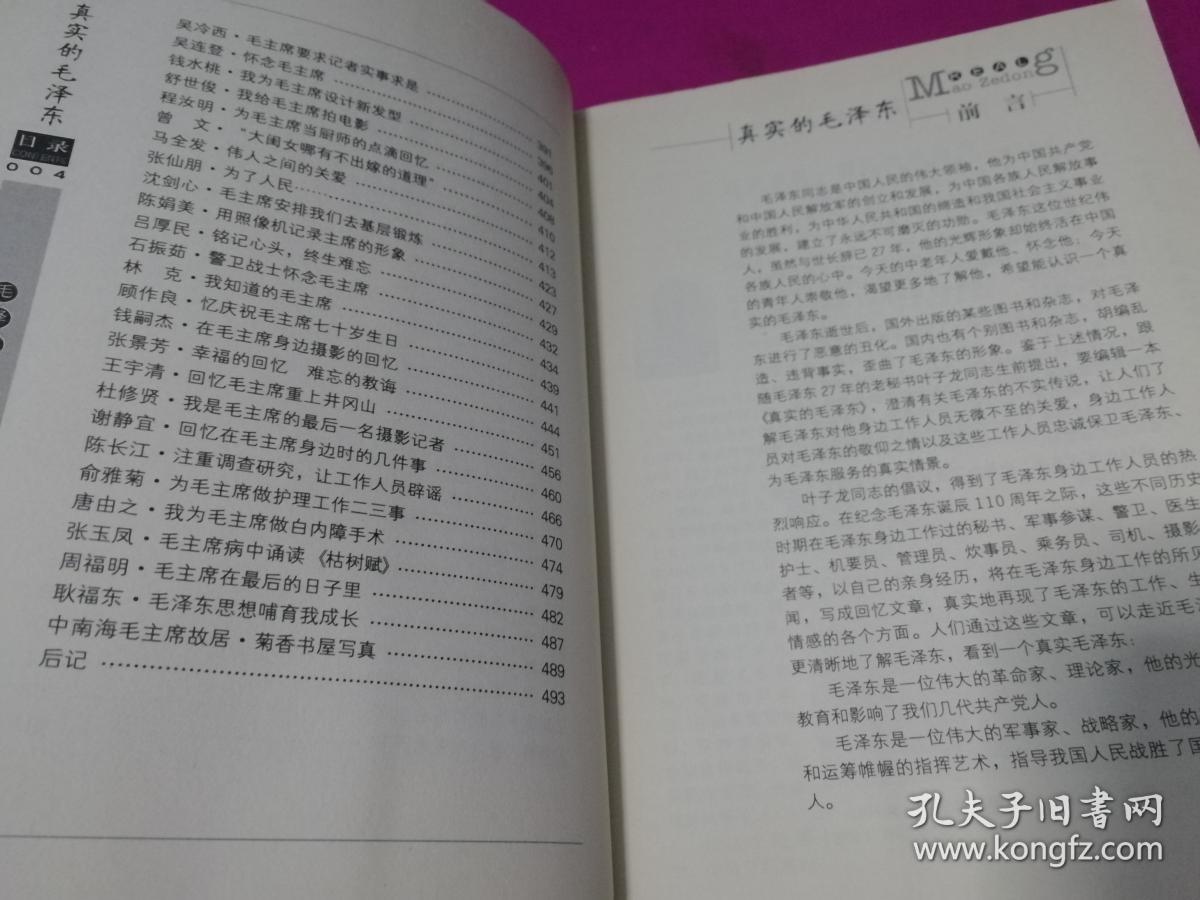 真实的毛泽东
目录
CONTENTS
004
吴冷西·毛主席要求记者实事求是
吴连登·怀念毛主席
钱水桃·我为毛主席设计新发型
舒世俊·我给毛主席拍电影 391
程汝明·为毛主席当厨师的点滴回忆 396
曾　文·“大闺女哪有不出嫁的道理” 401
马全发·伟人之间的关爱 404
张仙朋·为了人民 408
沈剑心·毛主席安排我们去基层锻炼 410
陈娟美·用照像机记录主席的形象 412
吕厚民·铭记心头，终生难忘 413
石振茹·警卫战士怀念毛主席 423
林　克·我知道的毛主席 427
顾作良·忆庆祝毛主席七十岁生日 429
钱嗣杰·在毛主席身边摄影的回忆 432
张景芳·幸福的回忆　难忘的教诲 434
王宇清·回忆毛主席重上井冈山 439
杜修贤·我是毛主席的最后一名摄影记者 441
谢静宜·回忆在毛主席身边时的几件事 444
陈长江·注重调查研究，让工作人员辟谣 451
俞雅菊·为毛主席做护理工作二三事 456
唐由之·我为毛主席做白内障手术 460
张玉凤·毛主席病中诵读《枯树赋》 466
周福明·毛主席在最后的日子里 470
耿福东·毛泽东思想哺育我成长 474
中南海毛主席故居·菊香书屋写真 479
后记 482
487
489
493
真实的毛泽东
REAL
Mao Zedong
前言
毛泽东同志是中国人民的伟大领袖，他为中国共产党
和中国人民解放军的创立和发展，为中国各族人民解放事
业的胜利，为中华人民共和国的缔造和我国社会主义事业
的发展，建立了永远不可磨灭的功勋。毛泽东这位世纪伟
人，虽然与世长辞已27年，他的光辉形象却始终活在中国
各族人民的心中。今天的中老年人爱戴他、怀念他；今天
的青年人崇敬他，渴望更多地了解他，希望能认识一个真
实的毛泽东。
毛泽东逝世后，国外出版的某些图书和杂志，对毛泽
东进行了恶意的丑化。国内也有个别图书和杂志，胡编乱
造、违背事实，歪曲了毛泽东的形象。鉴于上述情况，跟
随毛泽东27年的老秘书叶子龙同志生前提出，要编辑一本
《真实的毛泽东》，澄清有关毛泽东的不实传说，让人们了
解毛泽东对他身边工作人员无微不至的关爱，身边工作人
员对毛泽东的敬仰之情以及这些工作人员忠诚保卫毛泽东、
为毛泽东服务的真实情景。
叶子龙同志的倡议，得到了毛泽东身边工作人员的热
烈响应。在纪念毛泽东诞辰110周年之际，这些不同历史
时期在毛泽东身边工作过的秘书、军事参谋、警卫、医生
护士、机要员、管理员、炊事员、乘务员、司机、摄影
者等，以自己的亲身经历，将在毛泽东身边工作的所见
闻，写成回忆文章，真实地再现了毛泽东的工作、生
情感的各个方面。人们通过这些文章，可以走近毛泽
更清晰地了解毛泽东，看到一个真实毛泽东：
毛泽东是一位伟大的革命家、理论家，他的光
教育和影响了我们几代共产党人。
毛泽东是一位伟大的军事家、战略家，他的
和运筹帷幄的指挥艺术，指导我国人民战胜了国
人。
孔夫子旧书网
www.kongfz.com